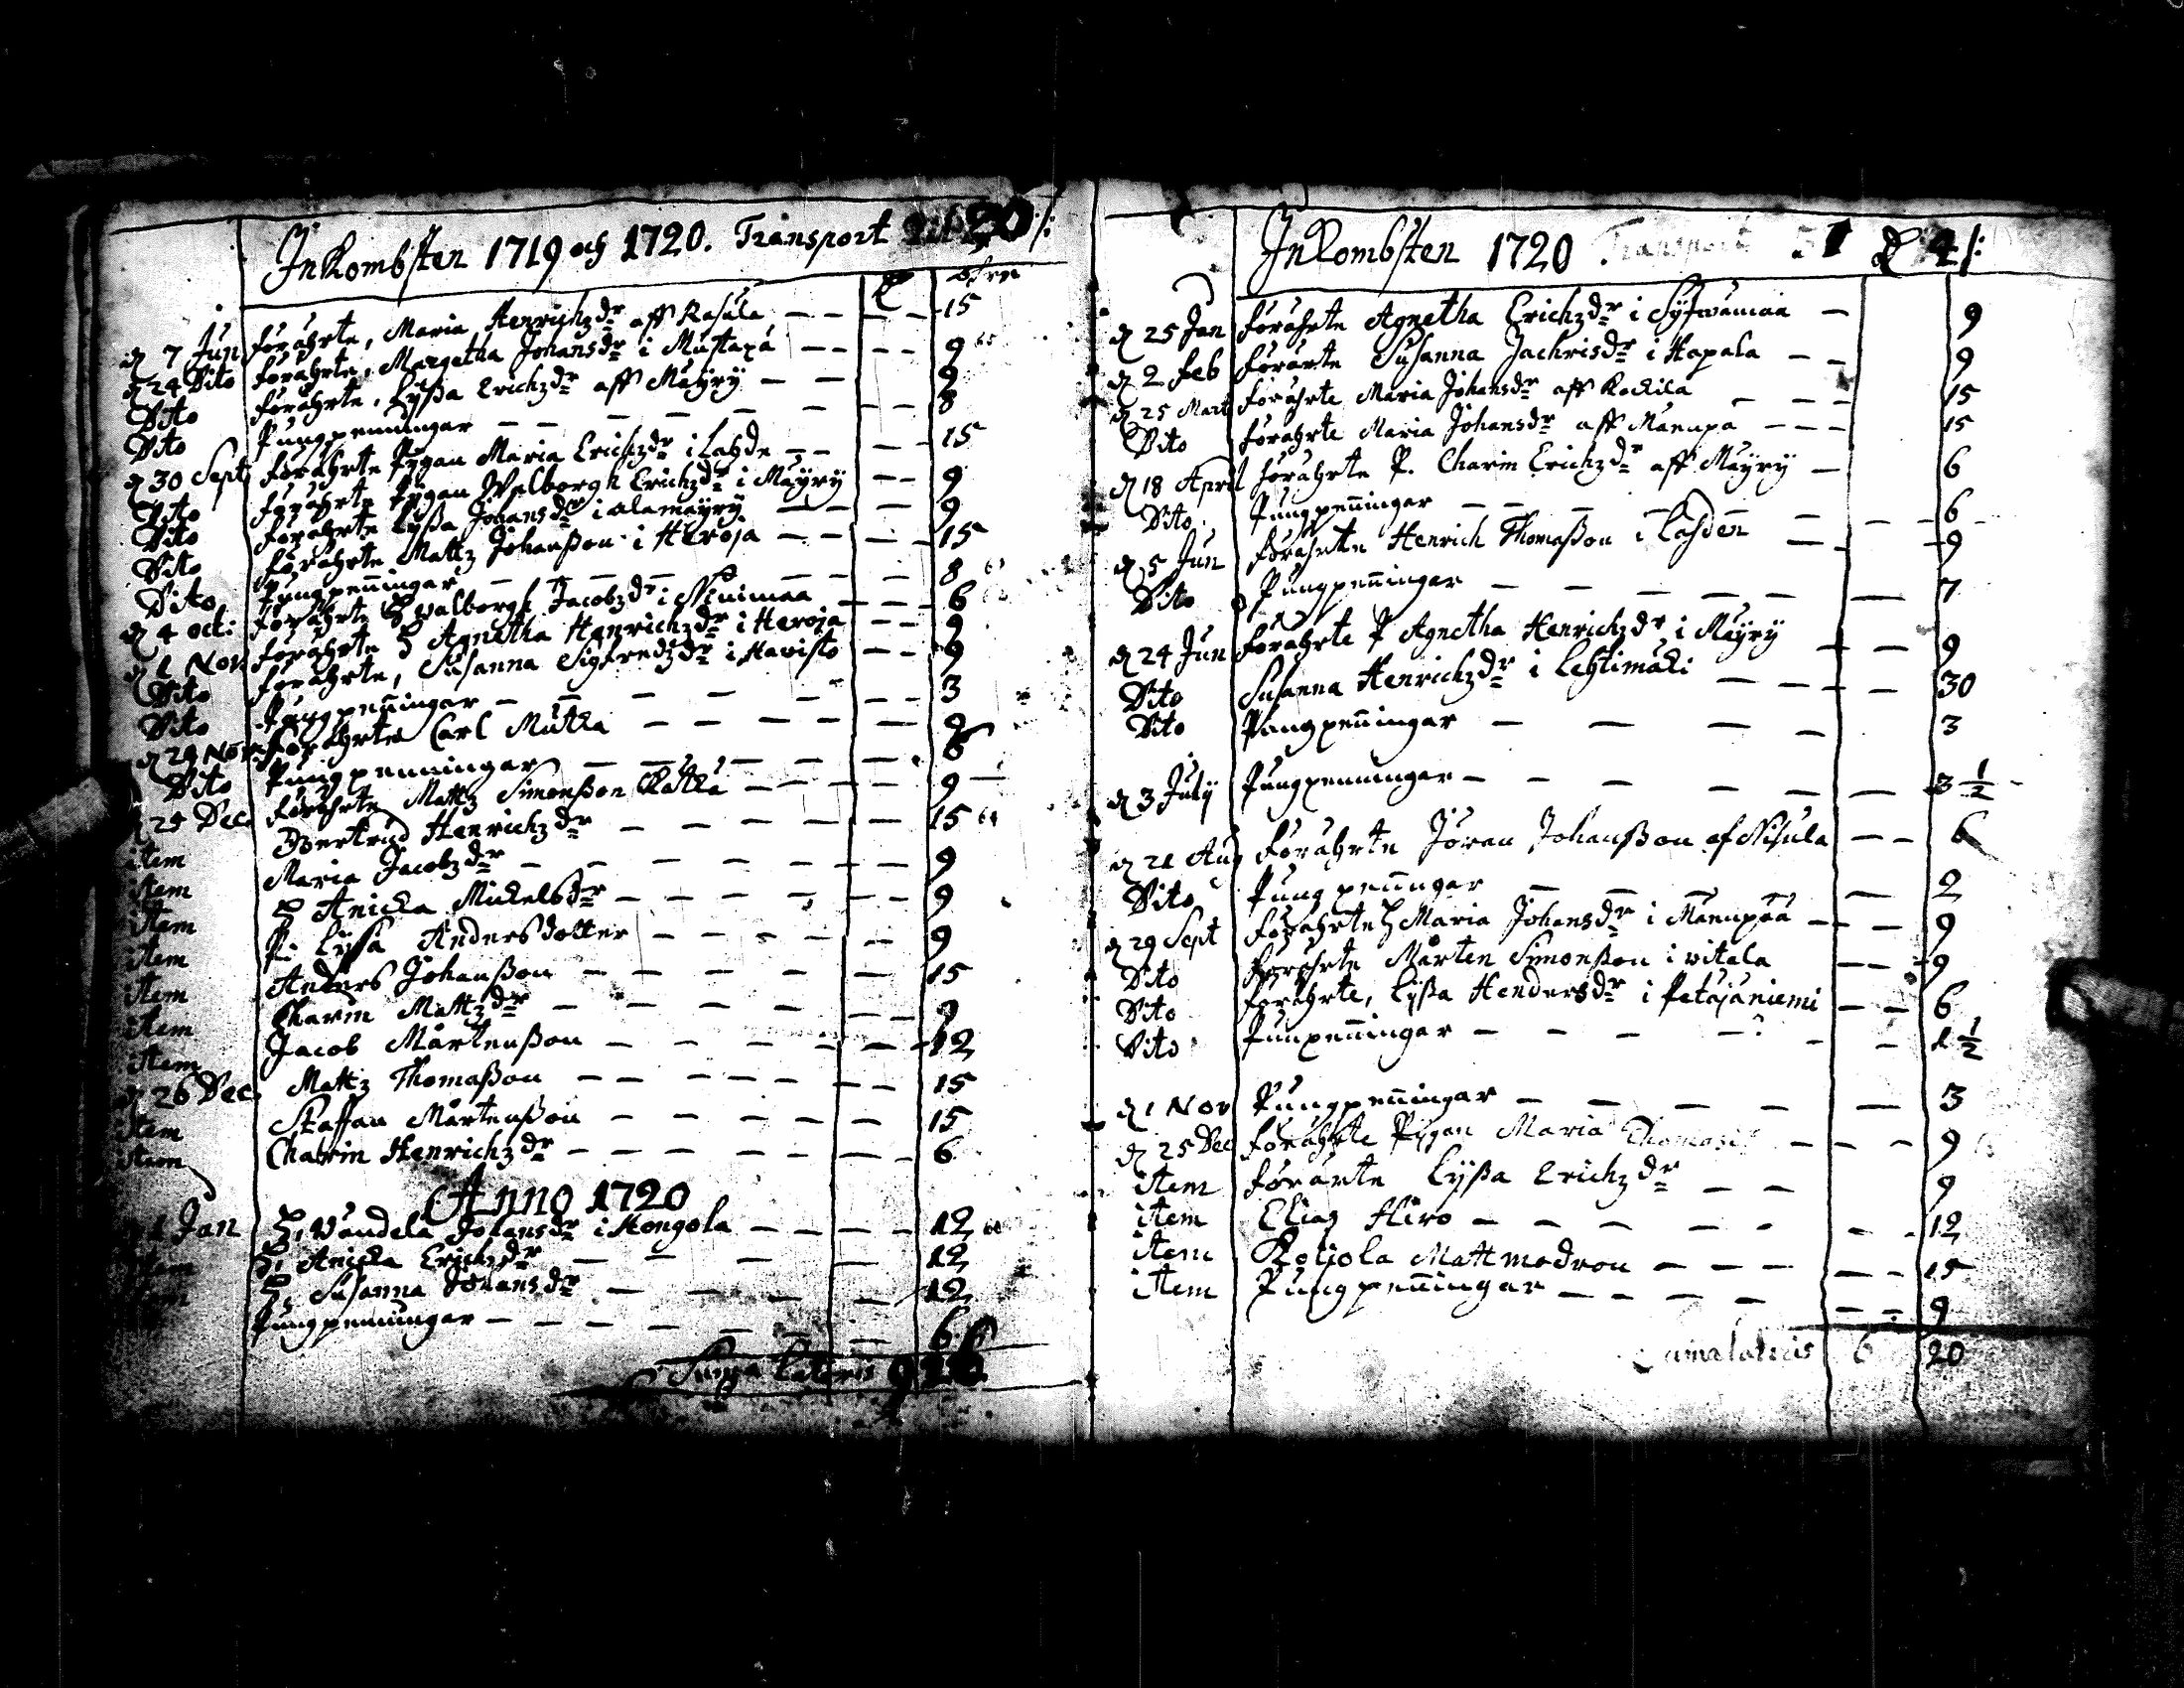 Inkombsten 1719 och 1720. Transport 20/:
öhre
d 7 Jun förährte, Maria Henrichzdr aff Rasula — 15
d 24 Dito förährte, Margetha Johansdr i Mustapä — 9
Dito förährte, Lyßa Erichzdr aff Mäyry — 9
Dito Pungpenningar — 8
d 30 Sept förährte Pygan Maria Erichzdr i Lahde — 15
Dito förährte Pygan Walborgh Erichzdr i Mäyry — 9
Dito förährte Lyßa Johansdr i alamäyry — 9
Dito förährte Mattz Johanßon i Heroja — 15
Dito Pungpeningar — 8
d 4 Oct: förährte Walborgh Jacobzdr i Niinimaa — 6
d 1 Nov förährte Agnetha Henrichzdr i Heroja — 9
Dito förährte, Susanna Sigfredzdr i Havisto — 9
Dito Pungpeningar — 3
d 29 Nov förährte Carl Mutka — 9
Dito Pungpenningar — 6
d 25 Dec förährte Mattz Simonßon — 9
item Bertrud Henrichzdr — 15
item Maria Jacobzdr — 9
item Anicka Mickelsdr — 9
item P: Lyssa Andersdotter — 9
item Anders Johanßon — 15
item Charin Mattzdr — 9
item Jacob Mårtenßon — 12
d 26 Dec Mattz Thomaßon — 15
item Staffan Mårtenßon — 15
item Chatrin Henrichzdr — 6
Anno 1720
d 1 Jan Vendela Johansdr i Hongola — 12
item Anicka Erichzdr — 12
item Susanna Johansdr — 12
Pungpenningar — 6
Suma Lateris
Inkombsten 1720 Transport 4/:
d 25 Jan förährte Agnetha Erichzdr i Sytwämaa — 9
d 2 Feb förärte Susanna Jachrisdr i Hapala — 9
d 25 Mart förährte Maria Johansdr aff Kockila — 15
Dito förährte Maria Johansdr aff Mänupä — 15
d 18 April förährte P. Charin Erichzdr aff Mäyry — 6
Dito Pungpeningar — 6
d 5 Jun förährte Henrich Thomaßon i Lahden — 9
Dito Pungpeningar — 7
d 24 Jun förährte P Agnetha Henrichzdr i Mäyry — 9
Dito Susanna Henrichzdr i Lehtimäki — 30
Dito Pungpeningar — 3
d 3 July Pungpenningar — 3 1/2
d 21 Aug förährte Jöran Johanßon af Nisula — 6
Dito Pungpeningar — 2
d 29 Sept förährte Maria Johansdr i Mänupää — 9
Dito förährte Mårten Simonßon i vitala — 9
Dito förährte, Lyßa Hendersdr i Petäjäniemi — 6
Dito Punpeningar — 1 1/2
d 1 Nov Pungpeningar — 3
d 25 Dec förährte Pygan Maria Thomasd — 9
item förärte Lyßa Erichzdr — 9
item Elias Hiro — 12
item Kotiola Mattmodron — 15
item Pungpeningar — 9
Suma lateris 6 20